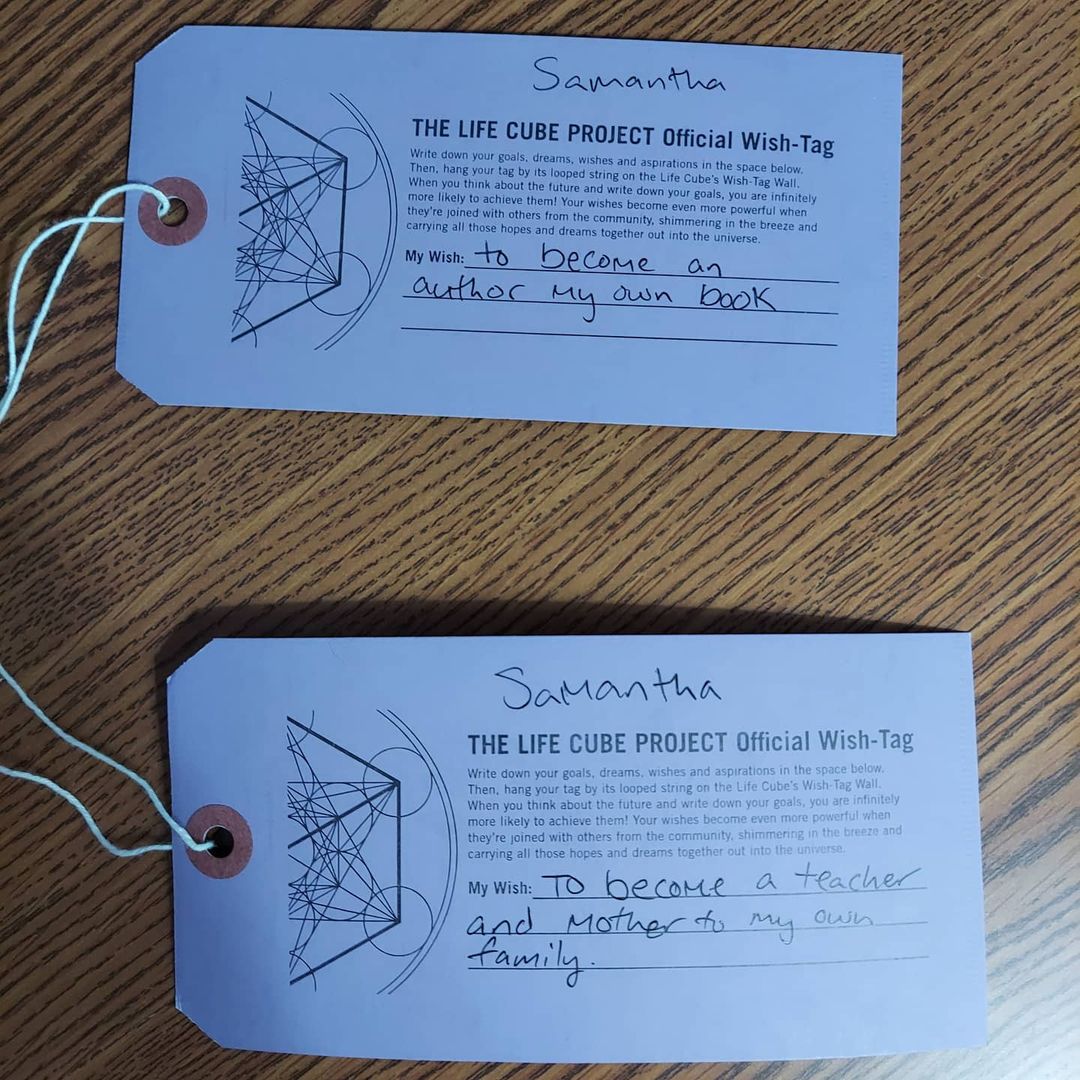 Samantha
THE LIFE CUBE PROJECT Official Wish-Tag
Write down your goals, dreams, wishes and aspirations in the space below.
Then, hang your tag by its looped string on the Life Cube's Wish-Tag Wall.
When you think about the future and write down your goals, you are infinitely
more likely to achieve them! Your wishes become even more powerful when
they're joined with others from the community, shimmering in the breeze and
carrying all those hopes and dreams together out into the universe.
My Wish: to become an
author my own book
Samantha
THE LIFE CUBE PROJECT Official Wish-Tag
Write down your goals, dreams, wishes and aspirations in the space below.
Then, hang your tag by its looped string on the Life Cube's Wish-Tag Wall.
When you think about the future and write down your goals, you are infinitely
more likely to achieve them! Your wishes become even more powerful when
they're joined with others from the community, shimmering in the breeze and
carrying all those hopes and dreams together out into the universe.
My Wish: To become a teacher
and Mother to my own
family.